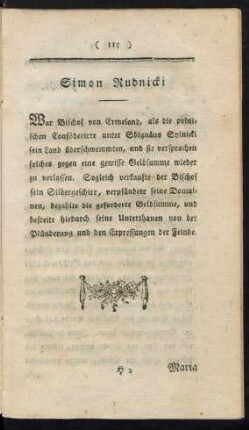 ( 115 )
Simon Rudnicki
War Bischof von Ermeland, als die polni-
schen Conföderirte unter Sbignäus Sylnicki
sein Land überschwemmten, und sie versprachen
solches gegen eine gewisse Geldsumme wieder
zu verlassen. Sogleich verkaufte der Bischof
sein Silbergeschirr, verpfändete seine Domai-
nen, bezahlte die geforderte Geldsumme, und
befreite hiedurch seine Unterthanen von der
Plünderung und den Erpressungen der Feinde.
H 2
Maria